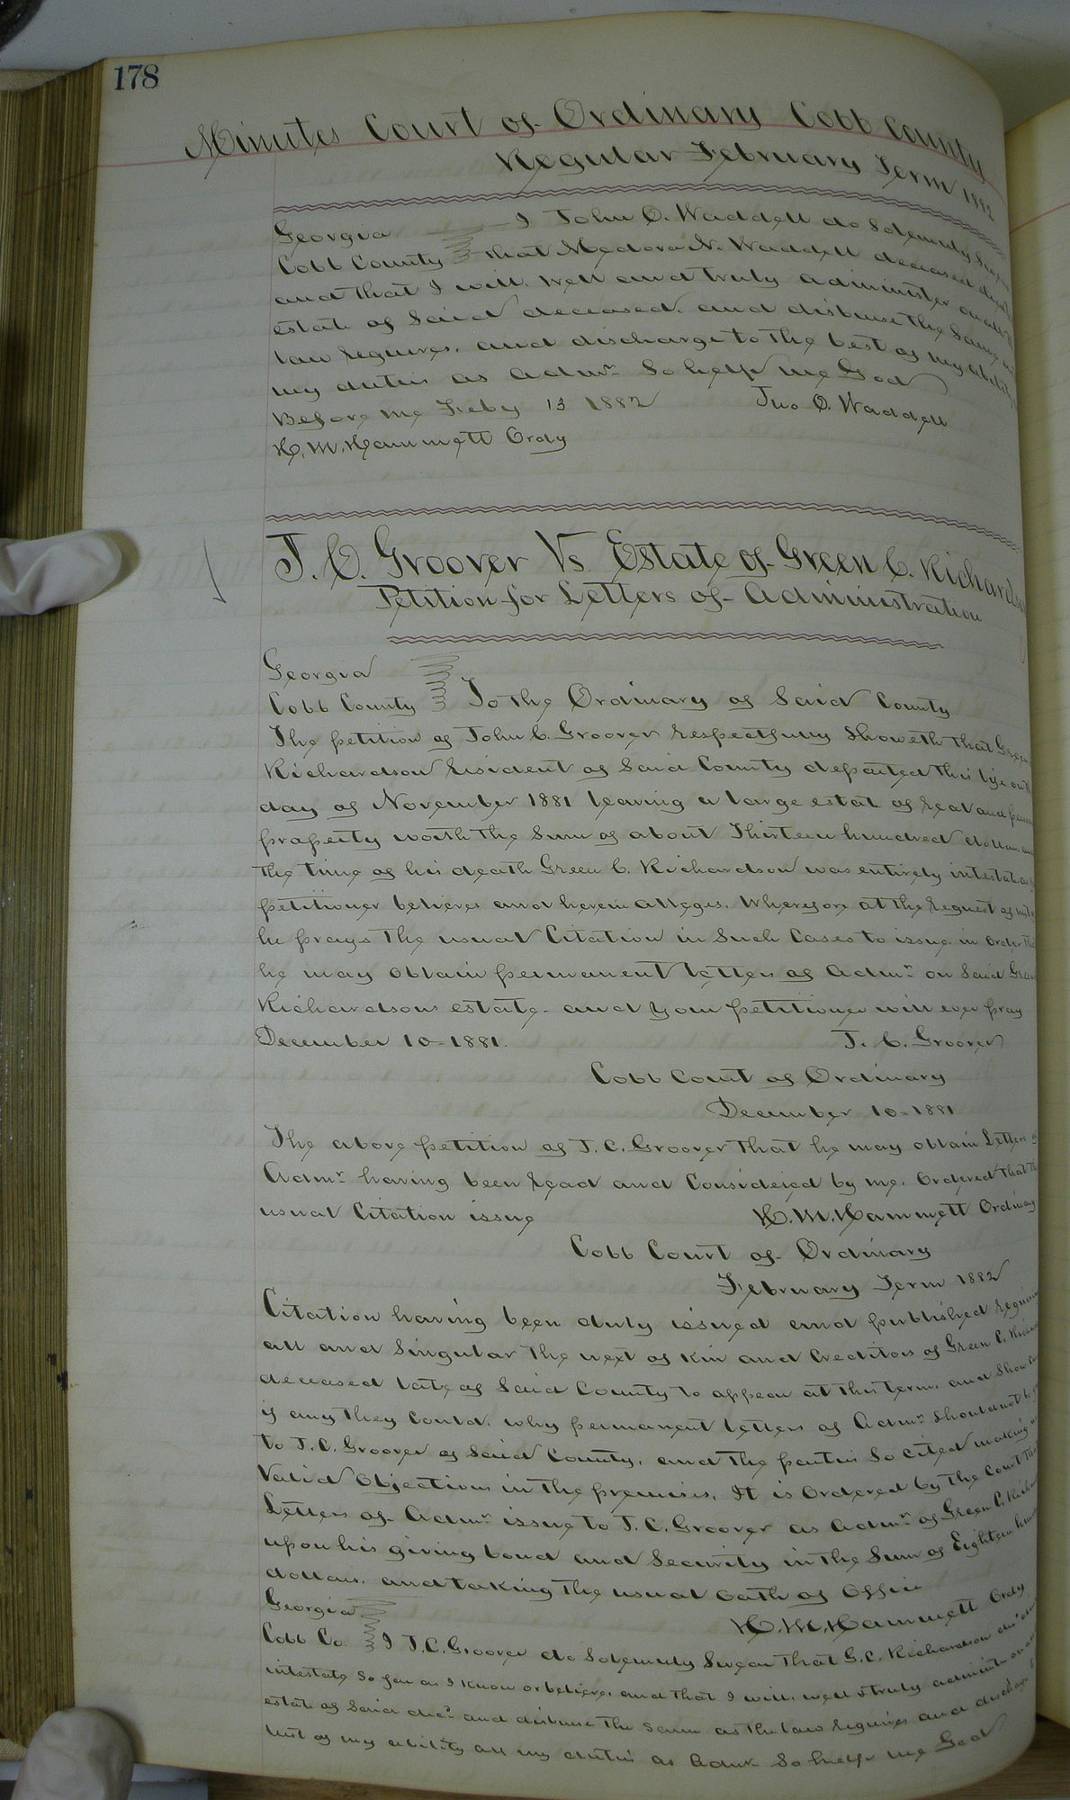 178
Minutes Court of Ordinary Cobb County
Regular February Term 1882
Georgia I John O. Waddell do Solemnly
Cobb County that Medora N. Waddell deceased
and that I will, well and truly administer on
estate of Said deceased. and disburse the Same
law requires. and discharge to the best of my ability
my duties as Admr. So help me God
Before me Feby 13 1882 Jno O. Waddell
H. M. Hammett Ordy
J. C. Groover Vs Estate of Green C. Richardson
Petition for Letters of Administration
Georgia
Cobb County To the Ordinary of Said County
The petition of John C. Groover respectfully Showeth that Green
Richardson resident of Said County departed this life on
day of November 1881 leaving a large estate of real and
property worth the Sum of about Thirteen hundred dollars
the time of his death Green C. Richardson was entirely intestate
petitioner believes and herein alleges. Wherefore at the request of
he prays the usual Citation in Such Cases to issue in order
he may obtain permanent letters of Admr. on Said Green
Richardsons estate. and your petitioner will ever pray
December 10-1881. J. C. Groover
Cobb Court of Ordinary
December 10-1881
The above petition of J. C. Groover that he may obtain Letters of
Admr. having been read and Considered by me. Ordered that the
usual Citation issue H. M. Hammett Ordinary
Cobb Court of Ordinary
February Term 1882
Citation having been duly issued and published
all and Singular the next of kin and Creditors of Green C.
deceased late of Said County to appear at this term. and Show
if any they could. why permanent letters of Admr. Should not
to J. C. Groover of Said County. and the parties So cited making
Valid Objections in the premises. It is Ordered by the Court
Letters of Admr. issue to J. C. Groover as Admr. of Green C.
upon his giving bond and Security in the Sum of Eighteen
dollars. and taking the usual oath of Office
Georgia H. M. Hammett Ordy
Cobb Co. I J. C. Groover do Solemnly Swear that G. C. Richardson
intestate So far as I know or believe. and that I will. well & truly
estate of Said decd and disburse the Same as the law requires and
best of my ability all my duties as Admr. So help me God